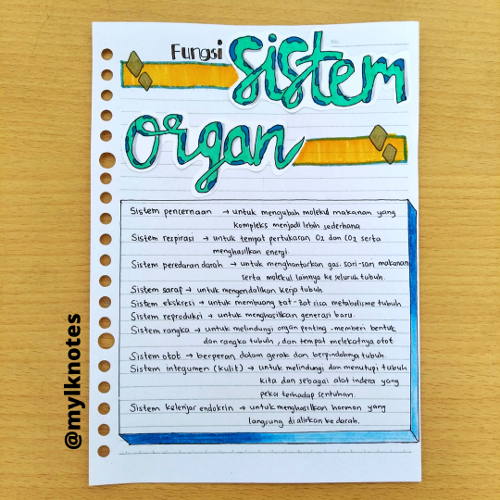 Fungsi sistem
organ
Sistem pencernaan → untuk mengubah molekul makanan yang
kompleks menjadi lebih sederhana
Sistem respirasi → untuk tempat pertukaran O2 dan CO2 serta
menghasilkan energi.
Sistem peredaran darah → untuk menghantarkan gas. sari-sari makanan
serta molekul lainnya ke seluruh tubuh.
Sistem saraf → untuk mengendalikan kerja tubuh
Sistem ekskresi → untuk membuang zat-zat sisa metabolisme tubuh
Sistem reproduksi → untuk menghasilkan generasi baru.
Sistem rangka → untuk melindungi organ penting. memberi bentuk
dan rangka tubuh, dan tempat melekatnya otot
Sistem otot → berperan dalam gerak dan berpindahnya tubuh.
Sistem integumen (kulit) → untuk melindungi dan menutupi tubuh
kita dan sebagai alat indera yang
peka terhadap sentuhan.
Sistem kelenjar endokrin → untuk menghasilkan hormon yang
langsung dialirkan ke darah.
@mylknotes